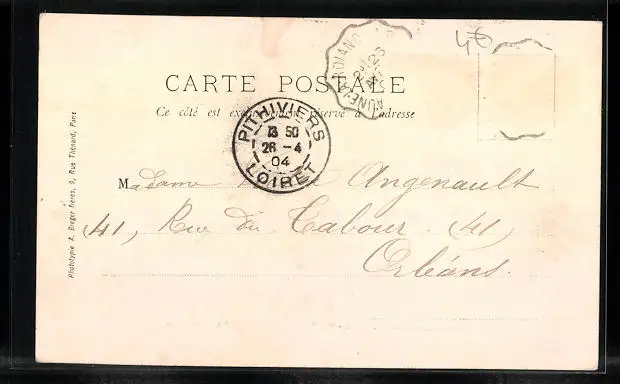 4f
CARTE POSTALE
Ce côté est exclusivement réservé à l'adresse
PITHIVIERS
13 50
26 - 4
04
LOIRET
Madame Angenault
41, Rue du Tabour (41)
Orléans.
Phototypie A. Breger frères, 9, Rue Thénard, Paris